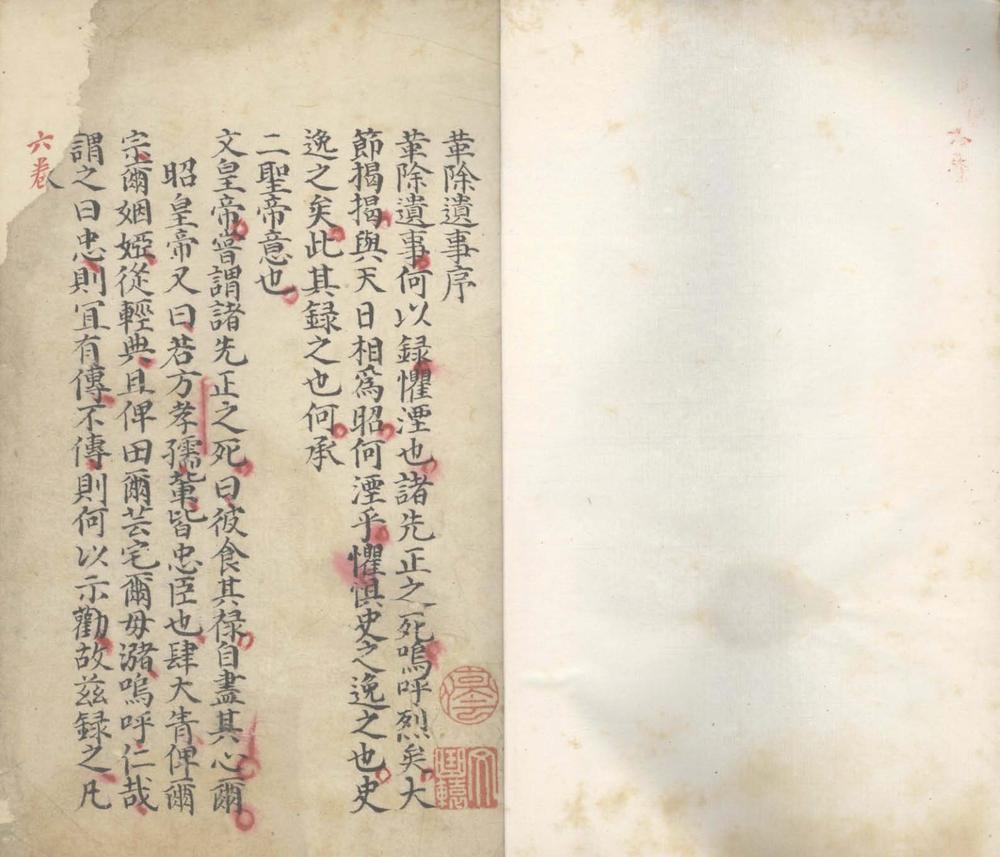 革除遺事序
革除遺事何以録懼湮也諸先正之死嗚呼烈矣大
節揭揭與天日相爲昭何湮乎懼惧史之逸之也史
逸之矣此其録之也何承
二聖帝意也
文皇帝嘗謂諸先正之死曰彼食其禄自盡其心爾
昭皇帝又曰若方孝孺軰皆忠臣也肆大眚俾爾
宗爾姻婭從輕典且俾田爾芸宅爾毋潴嗚呼仁哉
謂之曰忠則宜有傳不傳則何以示勸故兹録之凡
六卷